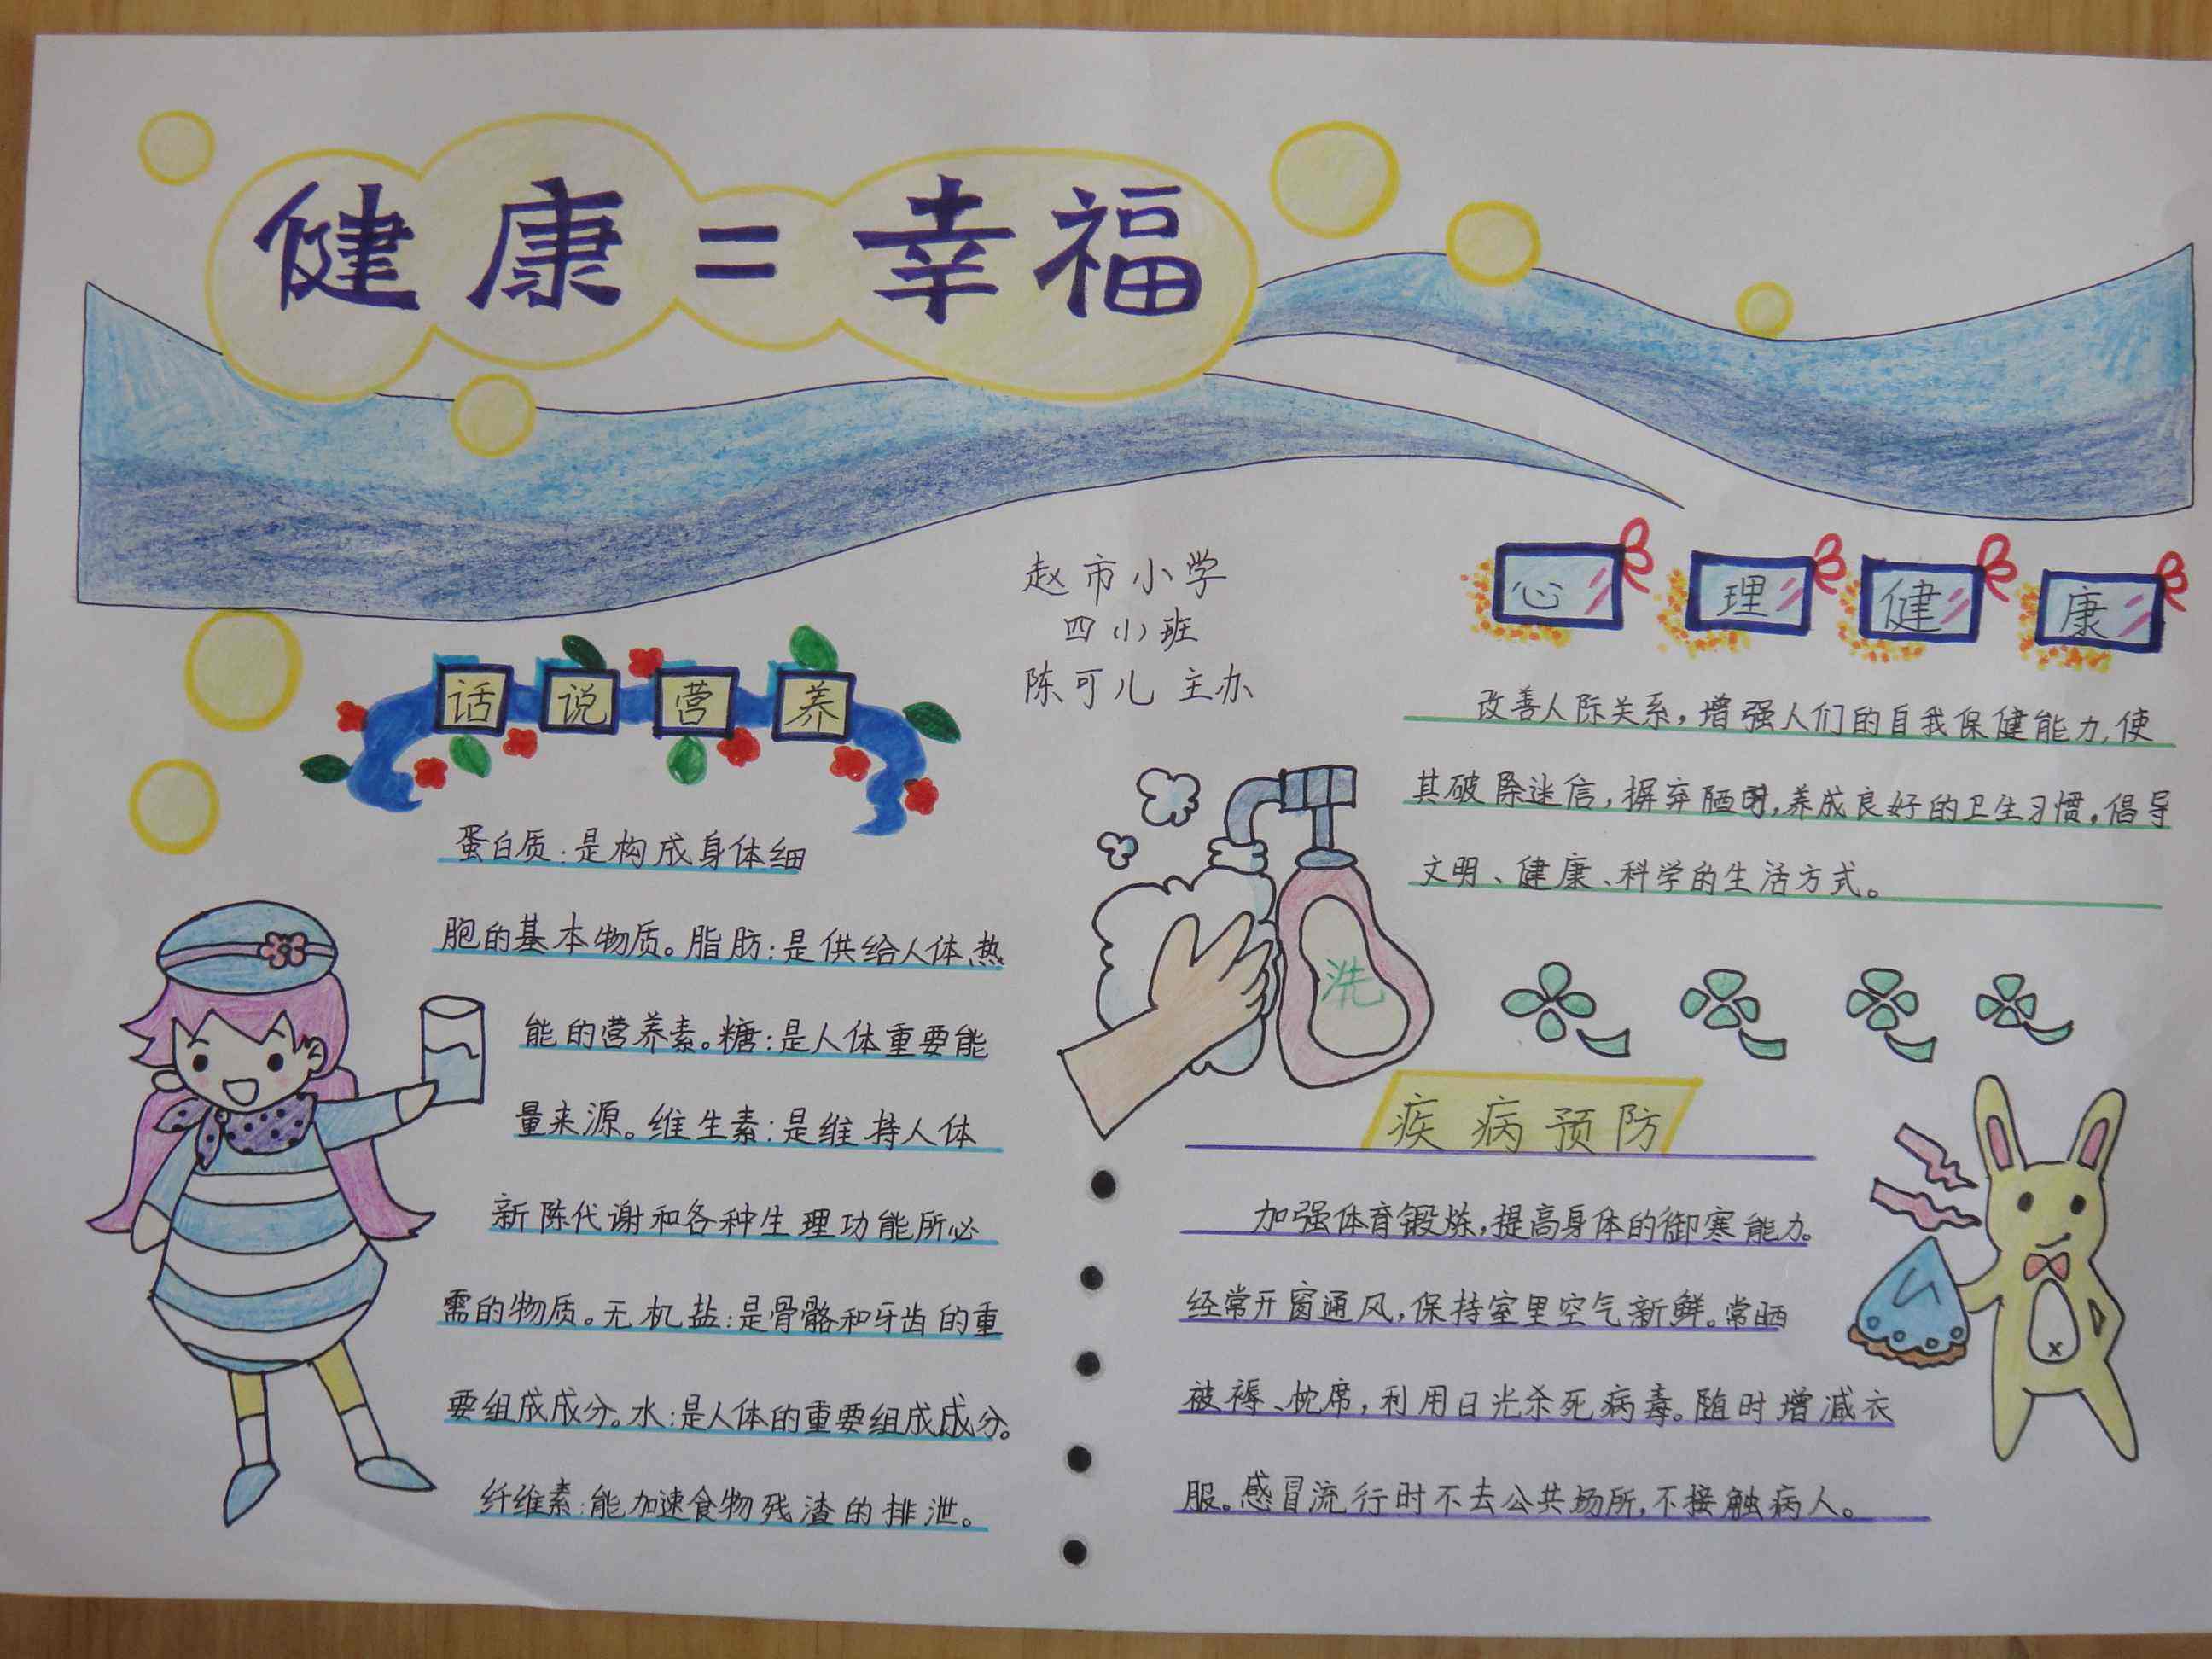 健康=幸福
赵市小学
四(1)班
陈可儿 主办
话说营养
蛋白质:是构成身体细
胞的基本物质。脂肪:是供给人体热
能的营养素。糖:是人体重要能
量来源。维生素:是维持人体
新陈代谢和各种生理功能所必
需的物质。无机盐:是骨骼和牙齿的重
要组成成分。水:是人体的重要组成成分。
纤维素:能加速食物残渣的排泄。
心理健康
改善人际关系,增强人们的自我保健能力,使
其破除迷信,摒弃陋,养成良好的卫生习惯,倡导
文明、健康、科学的生活方式。
洗
疾病预防
加强体育锻炼,提高身体的御寒能力。
经常开窗通风,保持室里空气新鲜。常晒
被褥、枕席,利用日光杀死病毒。随时增减衣
服。感冒流行时不去公共场所,不接触病人。